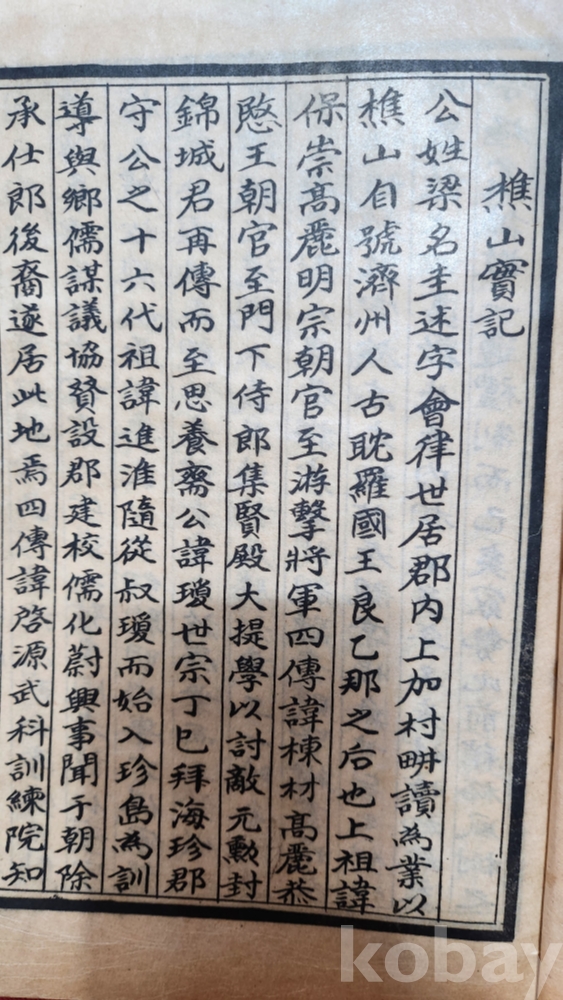 樵山實記
公姓梁名圭述字會律世居郡內上加村畊讀為業以
樵山自號濟州人古耽羅國王良乙那之后也上祖諱
保崇高麗明宗朝官至游擊將軍四傳諱棟材高麗恭
愍王朝官至門下侍郎集賢殿大提學以討敵元勳封
錦城君再傳而至思養齋公諱瓊世宗丁巳拜海珍郡
守公之十六代祖諱進淮隨從叔瓊而始入珍島為訓
導與鄉儒謀議協賛設郡建校儒化蔚興事聞于朝除
承仕郎後裔遂居此地焉四傳諱啓源武科訓練院知
kobay